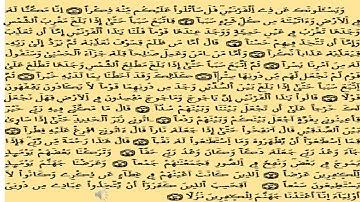 وَيَسْـَٔلُونَكَ عَن ذِى ٱلْقَرْنَيْنِ قُلْ سَأَتْلُوا۟ عَلَيْكُم مِّنْهُ ذِكْرًا ۝ إِنَّا مَكَّنَّا لَهُۥ
فِى ٱلْأَرْضِ وَءَاتَيْنَٰهُ مِن كُلِّ شَىْءٍ سَبَبًا ۝ فَأَتْبَعَ سَبَبًا ۝ حَتَّىٰٓ إِذَا بَلَغَ مَغْرِبَ ٱلشَّمْسِ
وَجَدَهَا تَغْرُبُ فِى عَيْنٍ حَمِئَةٍ وَوَجَدَ عِندَهَا قَوْمًا قُلْنَا يَٰذَا ٱلْقَرْنَيْنِ إِمَّآ أَن تُعَذِّبَ
وَإِمَّآ أَن تَتَّخِذَ فِيهِمْ حُسْنًا ۝ قَالَ أَمَّا مَن ظَلَمَ فَسَوْفَ نُعَذِّبُهُۥ ثُمَّ يُرَدُّ إِلَىٰ رَبِّهِۦ
فَيُعَذِّبُهُۥ عَذَابًا نُّكْرًا ۝ وَأَمَّا مَنْ ءَامَنَ وَعَمِلَ صَٰلِحًا فَلَهُۥ جَزَآءً ٱلْحُسْنَىٰ وَسَنَقُولُ
لَهُۥ مِنْ أَمْرِنَا يُسْرًا ۝ ثُمَّ أَتْبَعَ سَبَبًا ۝ حَتَّىٰٓ إِذَا بَلَغَ مَطْلِعَ ٱلشَّمْسِ وَجَدَهَا تَطْلُعُ عَلَىٰ
قَوْمٍ لَّمْ نَجْعَل لَّهُم مِّن دُونِهَا سِتْرًا ۝ كَذَٰلِكَ وَقَدْ أَحَطْنَا بِمَا لَدَيْهِ خُبْرًا ۝ ثُمَّ أَتْبَعَ
سَبَبًا ۝ حَتَّىٰٓ إِذَا بَلَغَ بَيْنَ ٱلسَّدَّيْنِ وَجَدَ مِن دُونِهِمَا قَوْمًا لَّا يَكَادُونَ يَفْقَهُونَ
قَوْلًا ۝ قَالُوا۟ يَٰذَا ٱلْقَرْنَيْنِ إِنَّ يَأْجُوجَ وَمَأْجُوجَ مُفْسِدُونَ فِى ٱلْأَرْضِ فَهَلْ نَجْعَلُ
لَكَ خَرْجًا عَلَىٰٓ أَن تَجْعَلَ بَيْنَنَا وَبَيْنَهُمْ سَدًّا ۝ قَالَ مَا مَكَّنِّى فِيهِ رَبِّى خَيْرٌ
فَأَعِينُونِى بِقُوَّةٍ أَجْعَلْ بَيْنَكُمْ وَبَيْنَهُمْ رَدْمًا ۝ ءَاتُونِى زُبَرَ ٱلْحَدِيدِ حَتَّىٰٓ إِذَا سَاوَىٰ
بَيْنَ ٱلصَّدَفَيْنِ قَالَ ٱنفُخُوا۟ حَتَّىٰٓ إِذَا جَعَلَهُۥ نَارًا قَالَ ءَاتُونِىٓ أُفْرِغْ عَلَيْهِ قِطْرًا ۝
فَمَا ٱسْطَٰعُوٓا۟ أَن يَظْهَرُوهُ وَمَا ٱسْتَطَٰعُوا۟ لَهُۥ نَقْبًا ۝ قَالَ هَٰذَا رَحْمَةٌ مِّن رَّبِّى فَإِذَا جَآءَ
وَعْدُ رَبِّى جَعَلَهُۥ دَكَّآءَ وَكَانَ وَعْدُ رَبِّى حَقًّا ۝ وَتَرَكْنَا بَعْضَهُمْ يَوْمَئِذٍ
يَمُوجُ فِى بَعْضٍ وَنُفِخَ فِى ٱلصُّورِ فَجَمَعْنَٰهُمْ جَمْعًا ۝ وَعَرَضْنَا جَهَنَّمَ يَوْمَئِذٍ
لِّلْكَٰفِرِينَ عَرْضًا ۝ ٱلَّذِينَ كَانَتْ أَعْيُنُهُمْ فِى غِطَآءٍ عَن ذِكْرِى وَكَانُوا۟ لَا
يَسْتَطِيعُونَ سَمْعًا ۝ أَفَحَسِبَ ٱلَّذِينَ كَفَرُوٓا۟ أَن يَتَّخِذُوا۟ عِبَادِى مِن دُونِىٓ
أَوْلِيَآءَ إِنَّآ أَعْتَدْنَا جَهَنَّمَ لِلْكَٰفِرِينَ نُزُلًا ۝